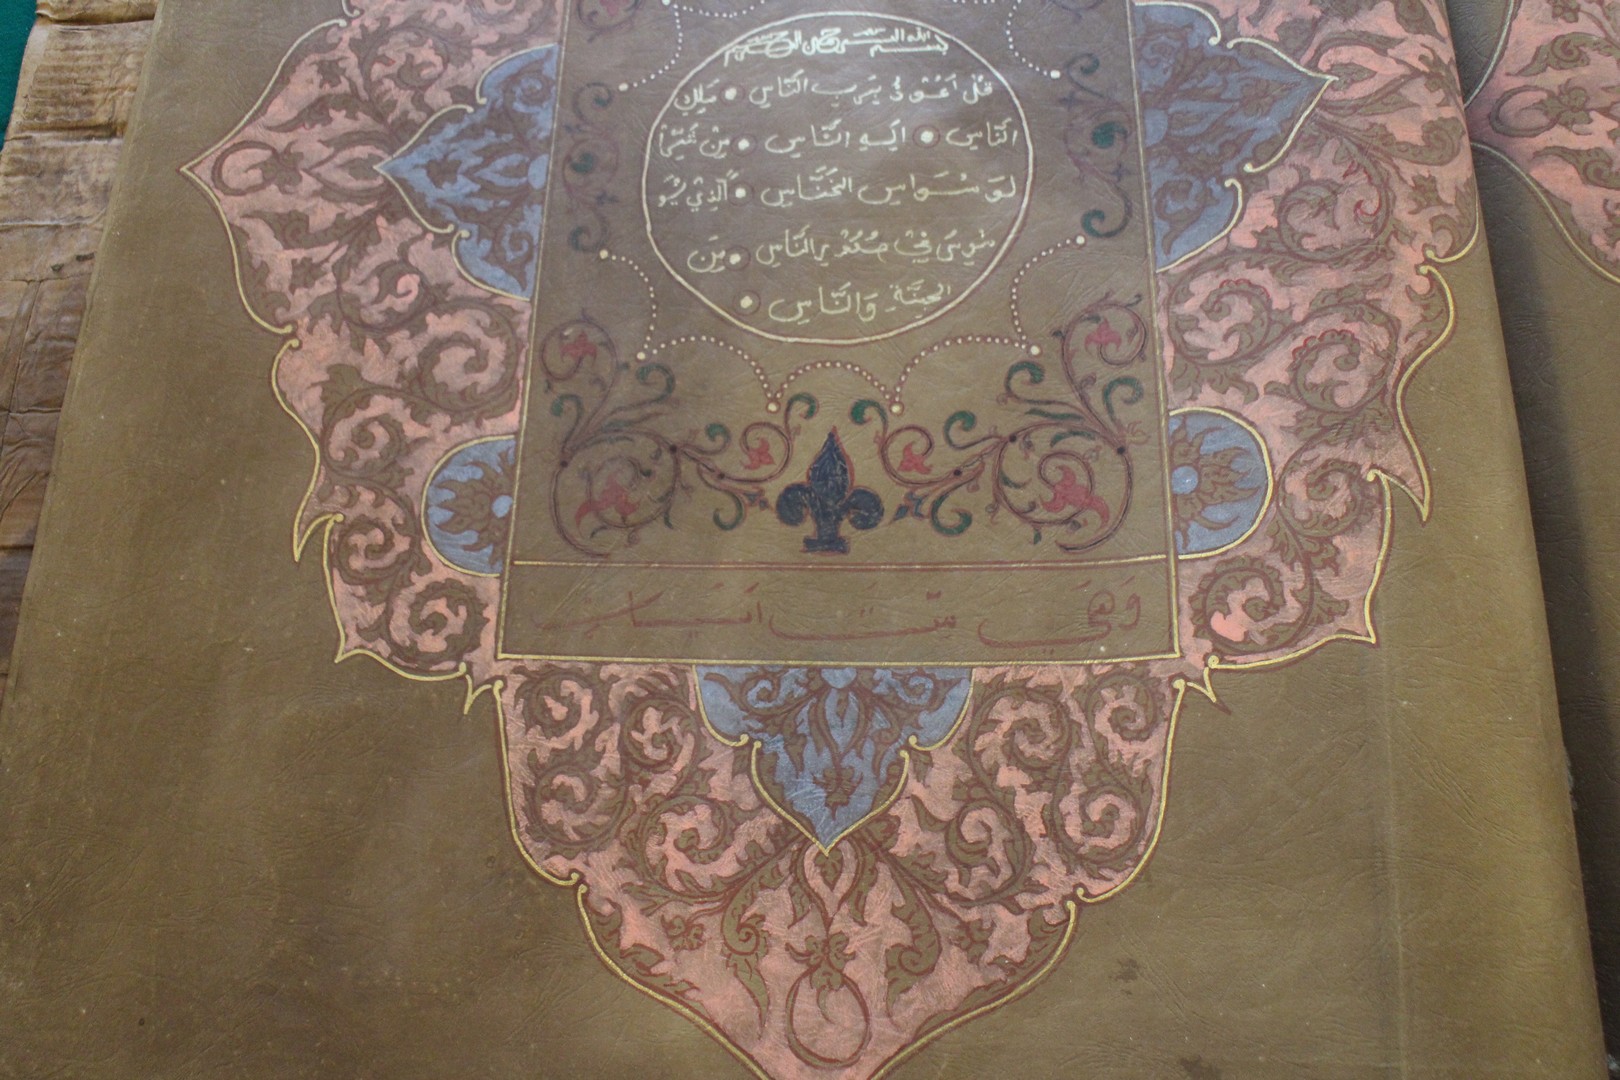 بسم الله الرحمن الرحيم
قُلْ اَعُوْذُ بِرَبِّ النَّاسِ • مَلِكِ
النَّاسِ • اِلٰهِ النَّاسِ • مِنْ شَرِّا
لْوَسْوَاسِ الْخَنَّاسِ • الَّذِيْ يُوَ
سْوِسُ فِيْ صُدُوْرِ النَّاسِ • مِنَ
الْجِنَّةِ وَالنَّاسِ •
وَهِيَ سِتّ ايَات